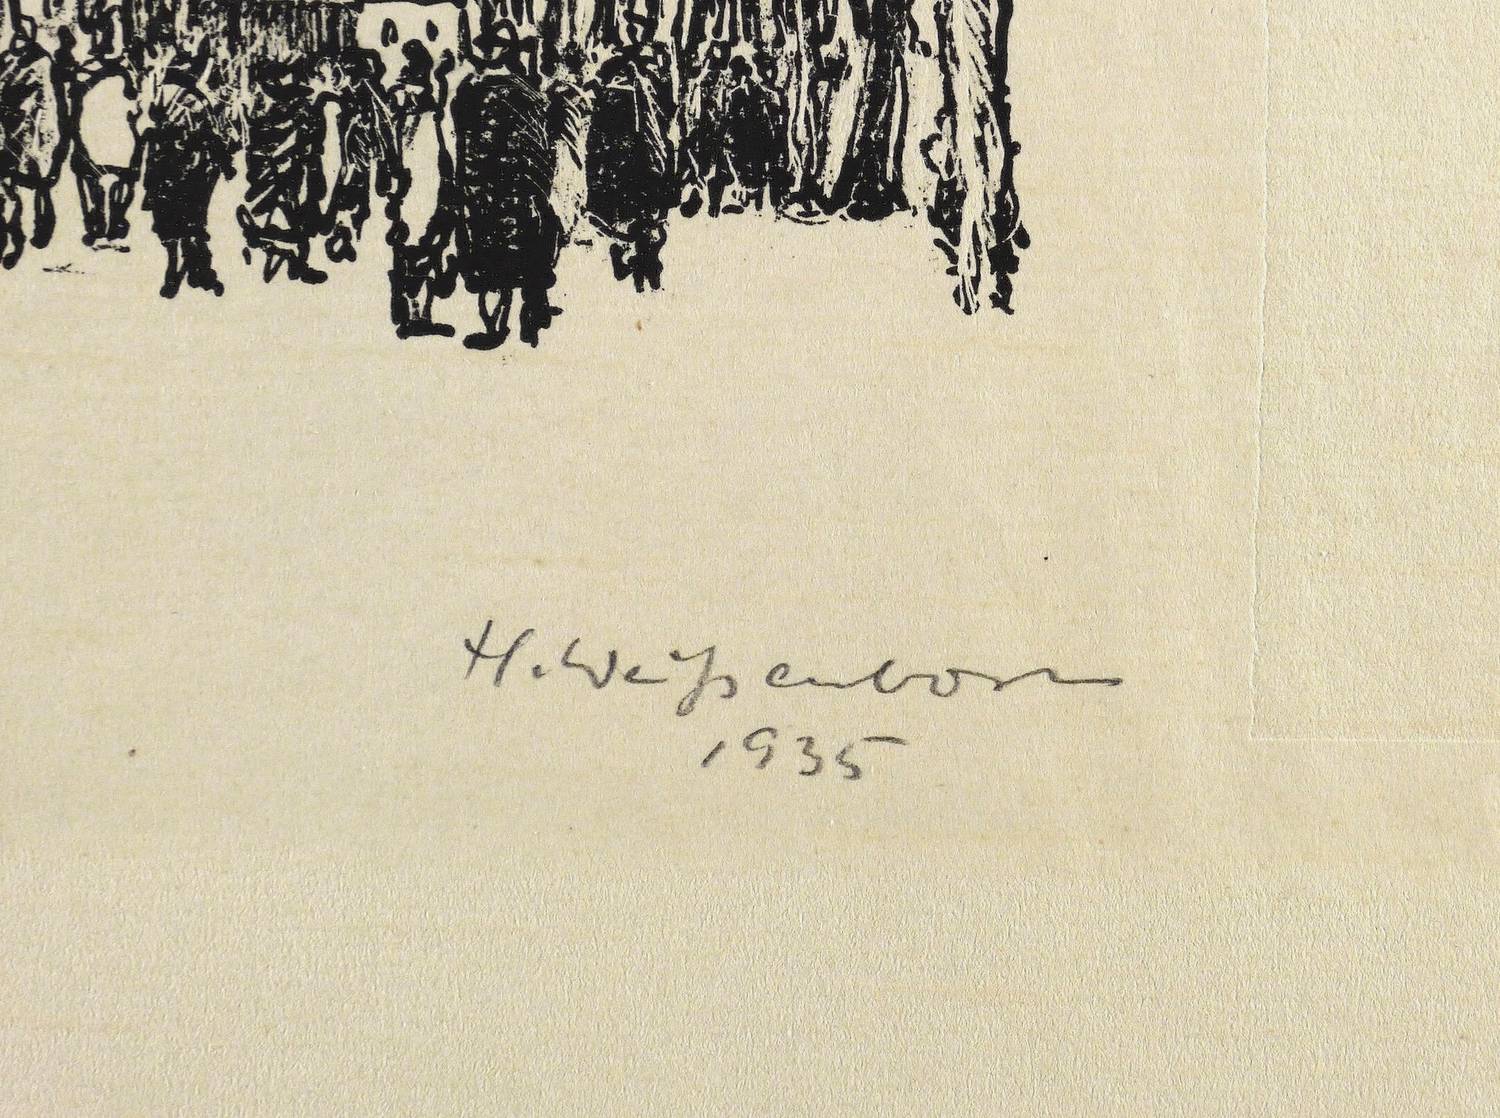 H. Weißenborn
1935